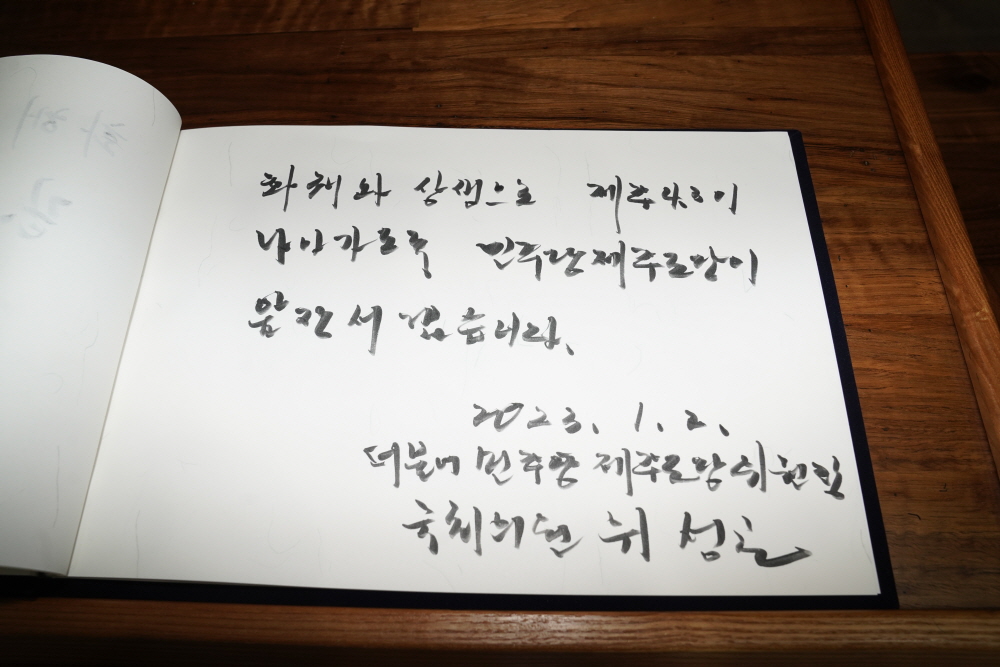 화해와 상생으로 제주4.3이
나아가도록 민주당제주도당이
앞장서겠습니다.
2023. 1. 2.
더불어 민주당 제주도당위원장
국회의원 위성곤